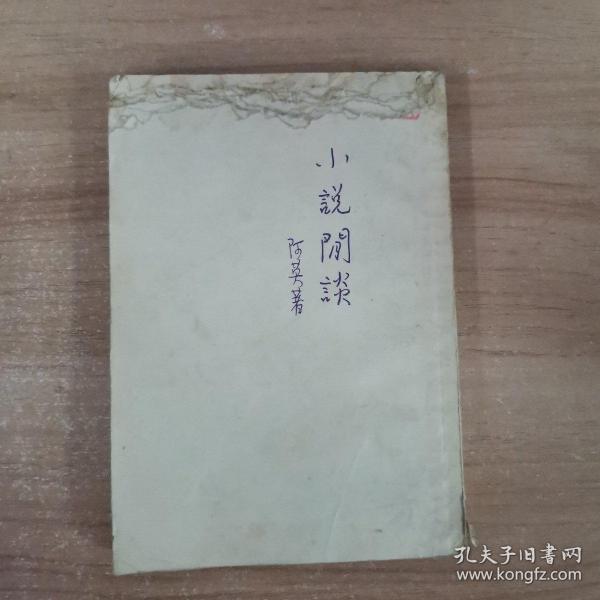 小説閒談
阿英著
孔夫子旧書网
www.kongfz.com